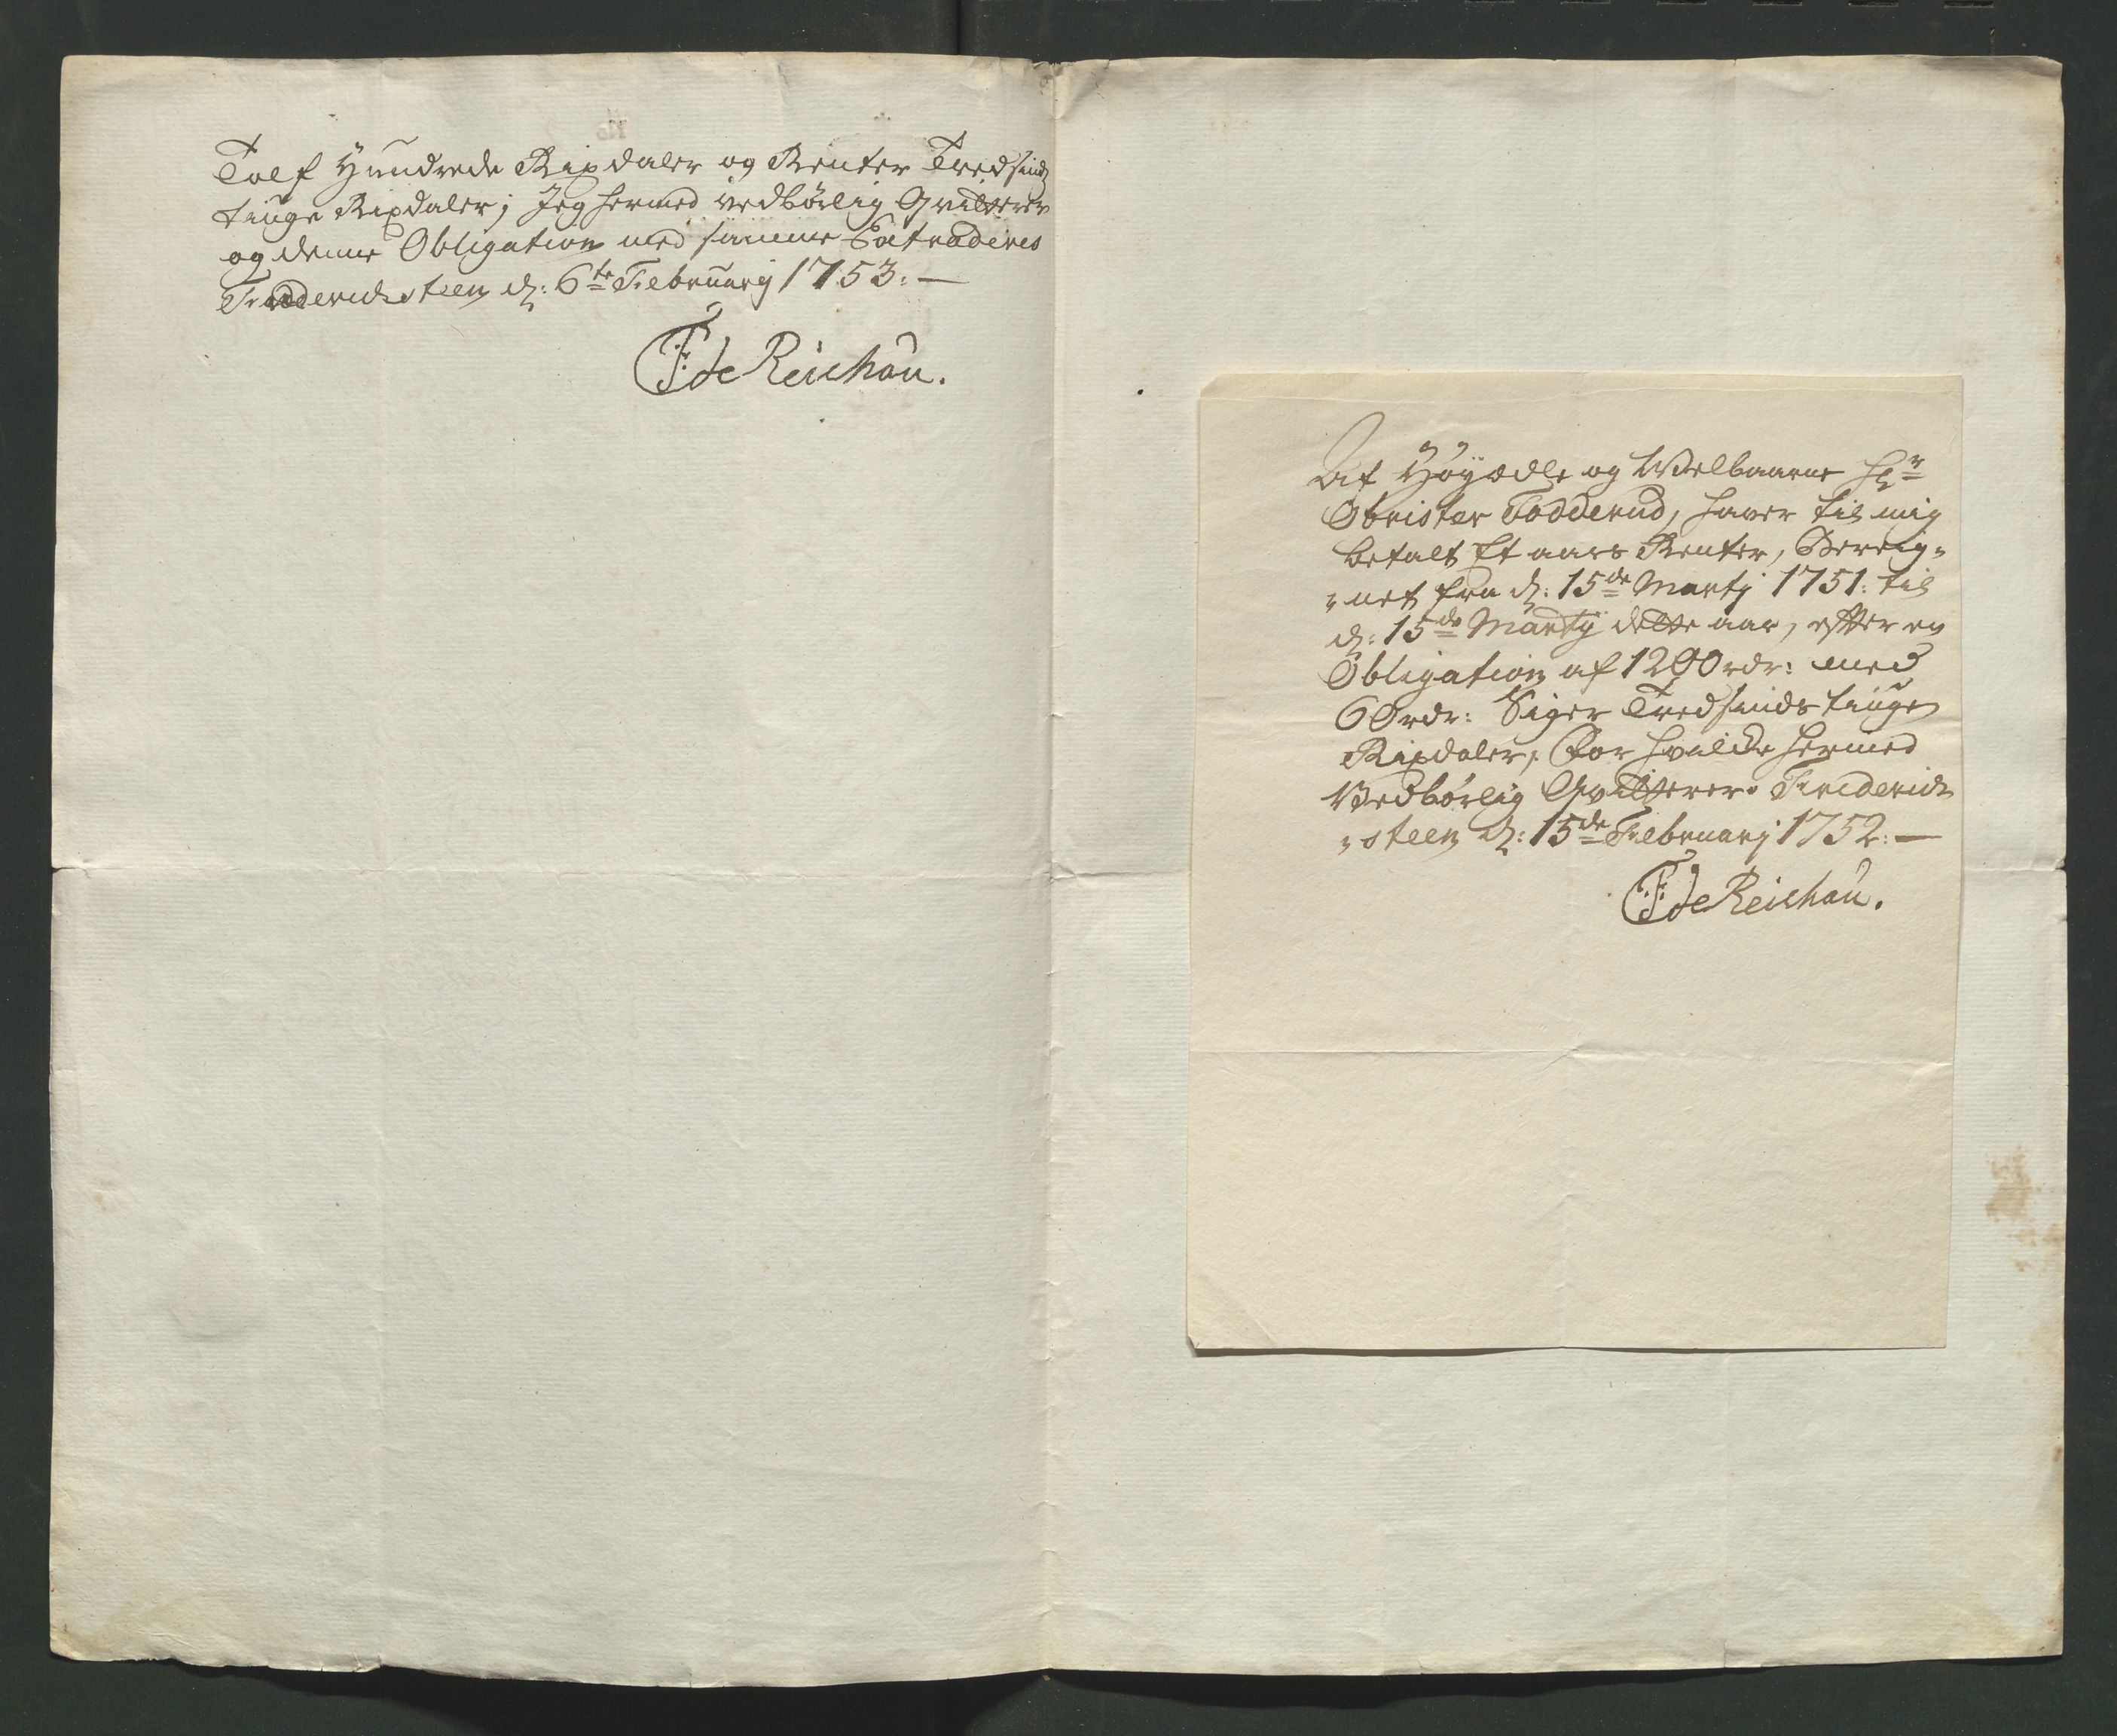 Tolf Hundrede Rixdaler og Renter Tredsinds
tiuge Rixdaler; Jeg hermed vedbörlig Qvitterer
og denne Obligation med samme Extraderes
Friderichsteen d: 6te Februarij 1753. —
F de Reichau.
Af Höyædle og Welbaarne Hr
Obrister Todderud, haver til mig
betalt Et aars Renter, Bereig-
-net fra d: 15de Martj 1751: til
d: 15de Martij dette aar, efter en
Obligation af 1200 rdr: med
60 rdr: Siger Tredsinds tiuge
Rixdaler, For hvilcke hermed
Vedbörlig Qvitterer. Friderich-
-steen d: 15de Februarj 1752: —
F de Reichau.